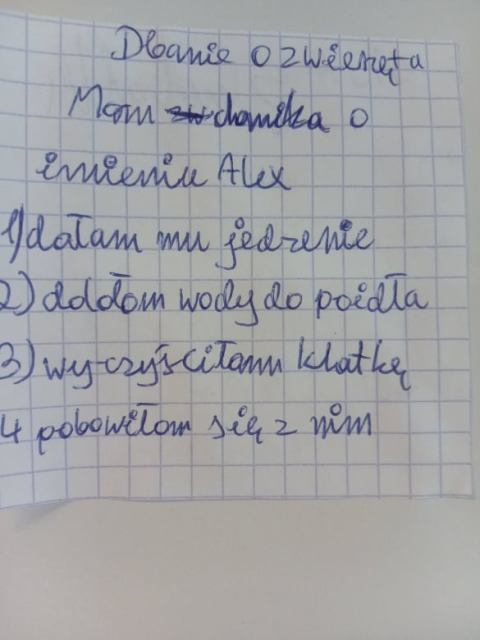 Dbanie o zwierzęta
Mam chomika o
imieniu Alex
1) dałam mu jedzenie
2) dolałam wody do poidła
3) wyczyściłam klatkę
4 pobawiłam się z nim